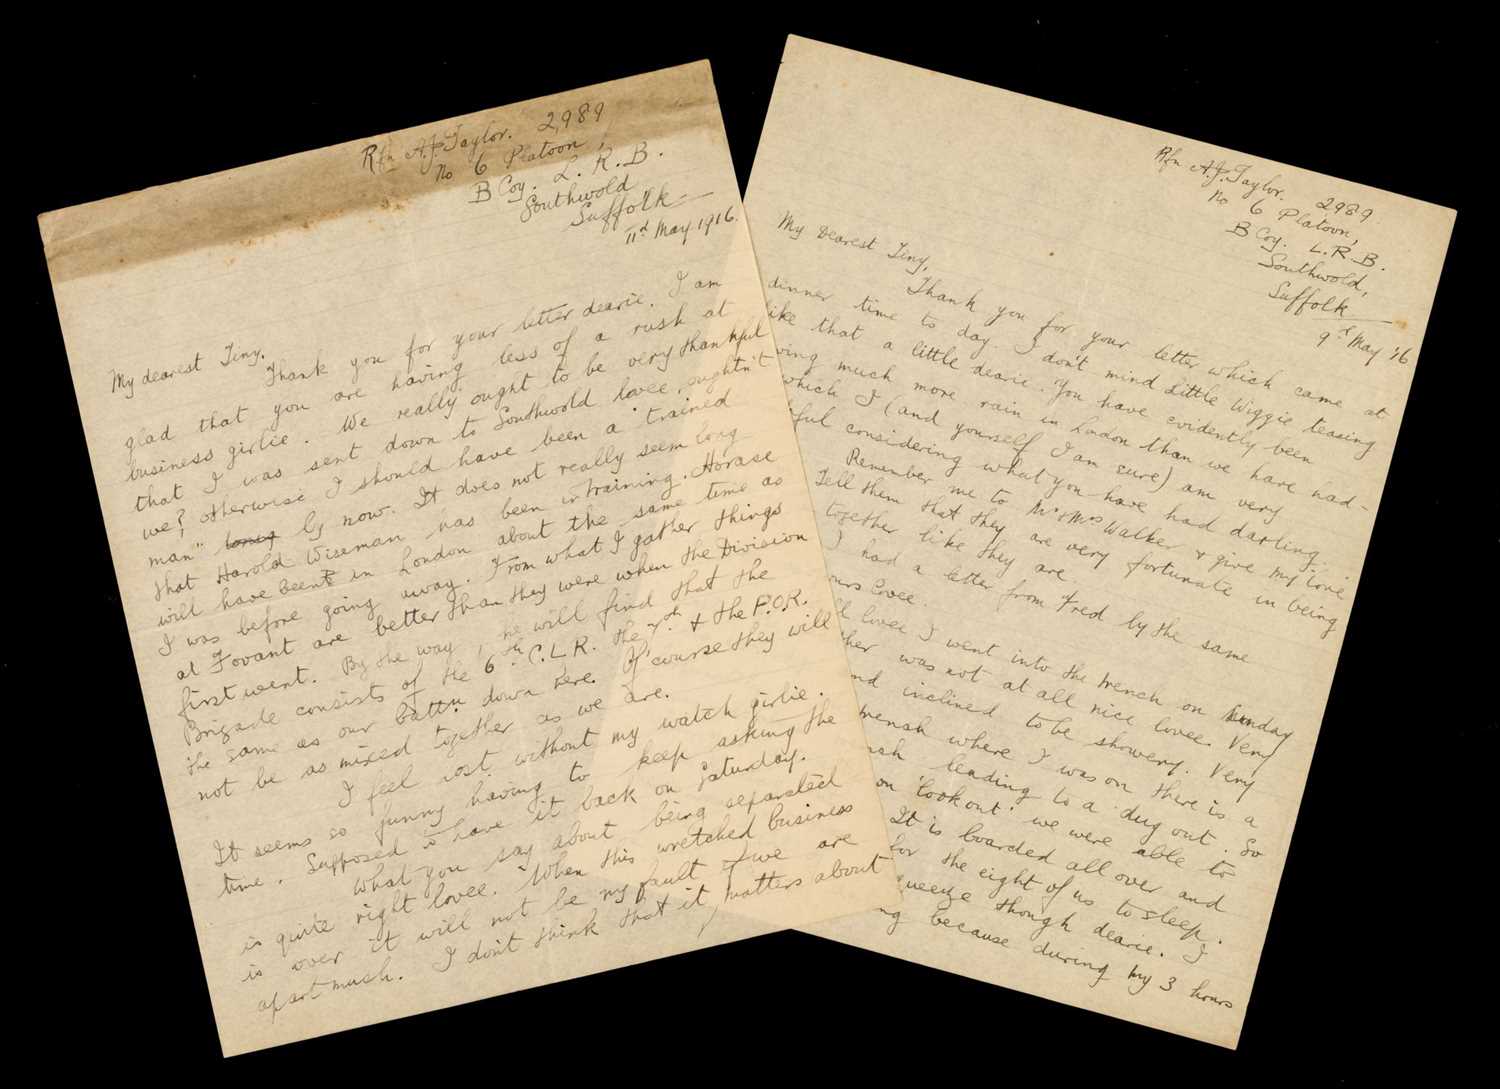 Rfn A.J. Taylor. 2989
No 6 Platoon,
B Coy. L.R.B.
Southwold
Suffolk
11th May 1916.
My dearest Tiny,
Thank you for your letter dearie. I am
glad that you are having less of a rush at
business girlie. We really ought to be very thankful
that I was sent down to Southwold lovee, oughtn't
we? otherwise I should have been a "trained
man" long by now. It does not really seem long
that Harold Wiseman has been in training. Horace
will have been in London about the same time as
I was before going away. From what I gather things
at Fovant are better than they were when the Division
first went. By the way, he will find that the
Brigade consists of the 6th C.L.R. the 7th & the P.O.R.
the same as our battn down here. Of course they will
not be as mixed together as we are.
I feel lost without my watch girlie.
It seems so funny having to keep asking the
time. Supposed to have it back on Saturday.
What you say about being separated
is quite right lovee. When this wretched business
is over it will not be my fault if we are
apart much. I don't think that it matters about
Rfn A.J. Taylor. 2989
No 6 Platoon,
B Coy. L.R.B.
Southwold,
Suffolk
9th May '16
My Dearest Tiny,
Thank you for your letter which came at
dinner time to day. I don't mind Little Wiggie teasing
like that a little dearie. You have evidently been
ving much more rain in London than we have had
which I (and yourself I am sure) am very
ful considering what you have had darling.
Remember me to Mr & Mrs Walker & give my love
Tell them that they are very fortunate in being
together like they are.
I had a letter from Fred by the same
ours lovee.
ll lovee I went into the trench on Sunday
ther was not at all nice lovee. Very
nd inclined to be showery. Very
trench where I was on there is a
nch leading to a dug out. So
on 'look out' we were able to
It is boarded all over and
for the eight of us to sleep.
queeze though dearie. I
ng because during my 3 hours